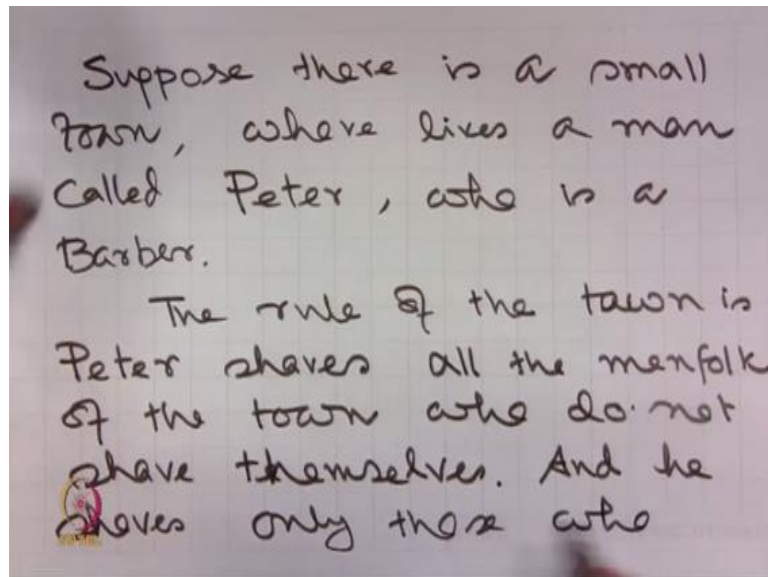 Suppose there is a small
town, where lives a man
Called Peter, who is a
Barber.
The rule of the town is
Peter shaves all the menfolk
of the town who do not
shave themselves. And he
shaves only those who